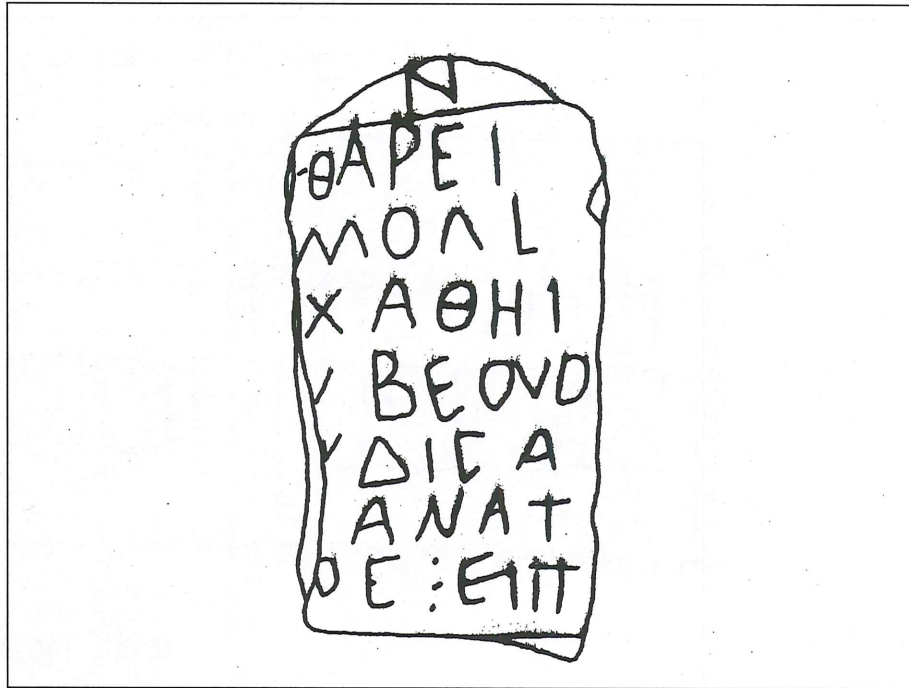 Ν
ΘΑΡΕΙ
ΜΟΛΙ
ΧΑΘΗΙ
Υ ΒΕΟΥΟ
Υ ΔΙΣΑ
ΑΝΑΤ
Ο Ε ⁝ ΕΙΠ